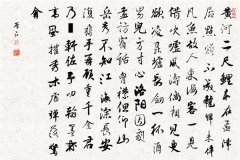 黄河二尺鯉本在孟津
居點額不成龍歸來伴
凡魚故人東海客一見
借吹噓風濤倘相見更
欲凌崑墟長劍一杯酒
男兒方寸心洛陽因劇
孟訪宿話胸襟但仰山
岳秀不知江海深長安
復攜手再顧重千金君
乃軒佐予叨翰墨林
高風摧秀木虚彈驚
禽